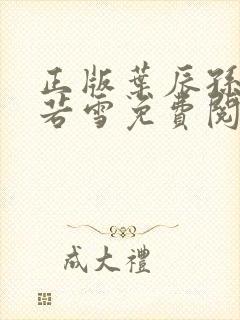 正版葉辰孫
若雪免費閱
成大禮